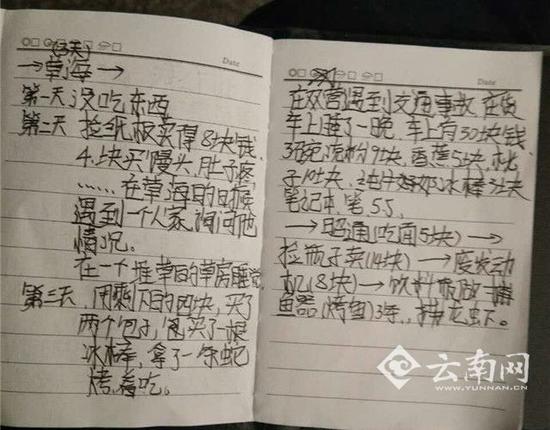 Date
(3天)
→草海→
第一天 没吃东西
第二天 捡纸板买得8块钱
4块买馒头,肚子疼
……在草海的
遇到一个人家,询问他
情况。
在一个堆草的草房睡觉
第三天,用剩下的四块,买了
两个包子,买了一根
冰棒,拿了一条蛇
烤着吃。
Date
在双营遇到交通事故,在货
车上睡了一晚,车上有30块钱,
3碗凉粉9块,香蕉5块,桃
子10块,冰棒
笔记本笔5.5.
→昭通(吃面5块)→
捡瓶子卖(14块)→废发动
机(8块)→饮料瓶做一捕
鱼器(烤鱼)3条,龙虾。
云南网
WWW.YUNNAN.CN